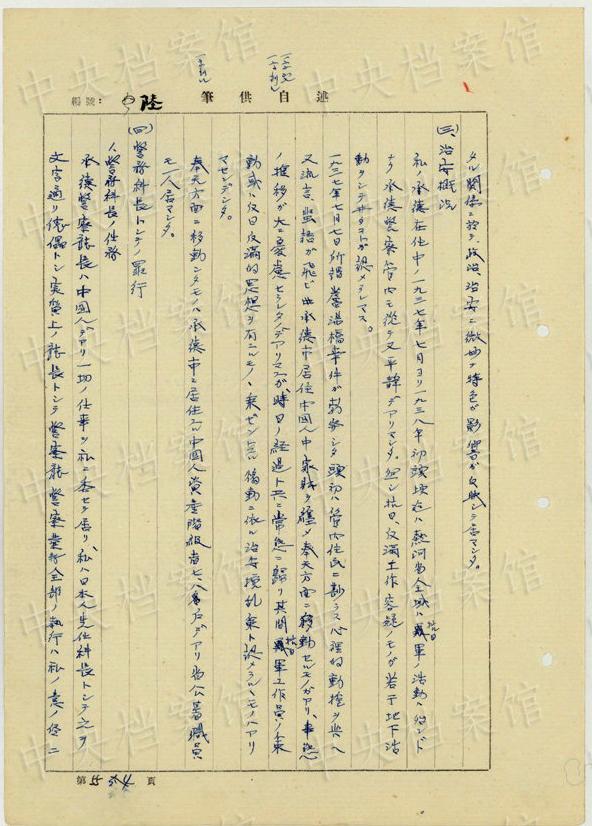 述自供筆
編號:
陸
タル関係ニ於テ、政治、治安ニ微妙ナ特色ガ影響ガ反映シテ居マシタ。
(三)、治安概況
私ノ承徳在任中ノ一九三七年七月ヨリ一九三八年初頭頃迄ハ熱河省全域ハ
ナク承徳警察管内モ従ッテ又平静デアリマシタ。但シ抗日、反満工作容疑ノモノガ若干地下活
動
一九三七年七月七日所謂蘆溝橋事件ガ勃発シタ頭初ハ管内住民ニ尠ラズ心理的動揺ヲ与ヘ
又流言、蜚語ガ飛ビ承徳市居住中国人中家財ヲ纏メ奉天方面ニ移動セルモノガアリ、事態
ノ推移ガ大ニ憂慮セラレタノデアリマスガ、時日ノ経過ト共ニ常態ニ歸リ其間
動或ハ反日反満的思想ヲ有スルモノノ乗ゼントスル
マセンデシタ。
奉天方面ニ移動シタモノハ承徳市ニ居住スル中国人資産階級者七、八名戸デアリ省公署職員
モ一人居マシタ。
(四)警務科長トシテノ罪行
人警務科長ノ任務
承徳警察廳長ハ中國人デアリ一切ノ仕事ヲ私ニ委セテ居リ、私ハ日本人先任科長トシテ之ヲ
文字通リ傀儡トシ実質上ノ廳長トシテ警察廳警察業務全部ノ執行ハ私ノ意ノ侭ニ
第 頁
中央档案馆